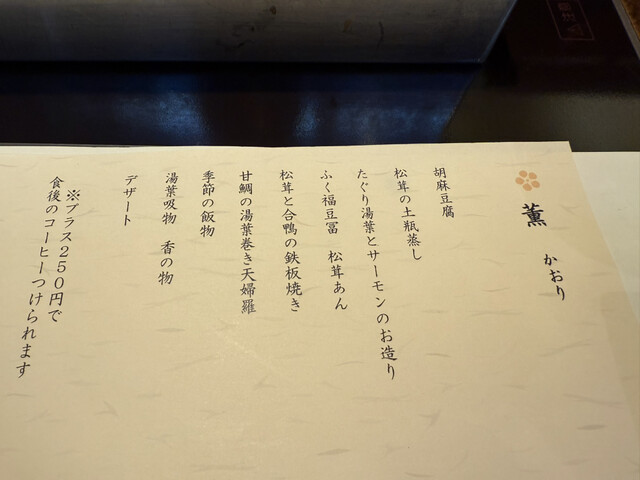 薫 かおり
胡麻豆腐
松茸の土瓶蒸し
たぐり湯葉とサーモンのお造り
ふく福豆冨 松茸あん
松茸と合鴨の鉄板焼き
甘鯛の湯葉巻き天婦羅
季節の飯物
湯葉吸物 香の物
デザート
※プラス250円で
食後のコーヒーつけられます